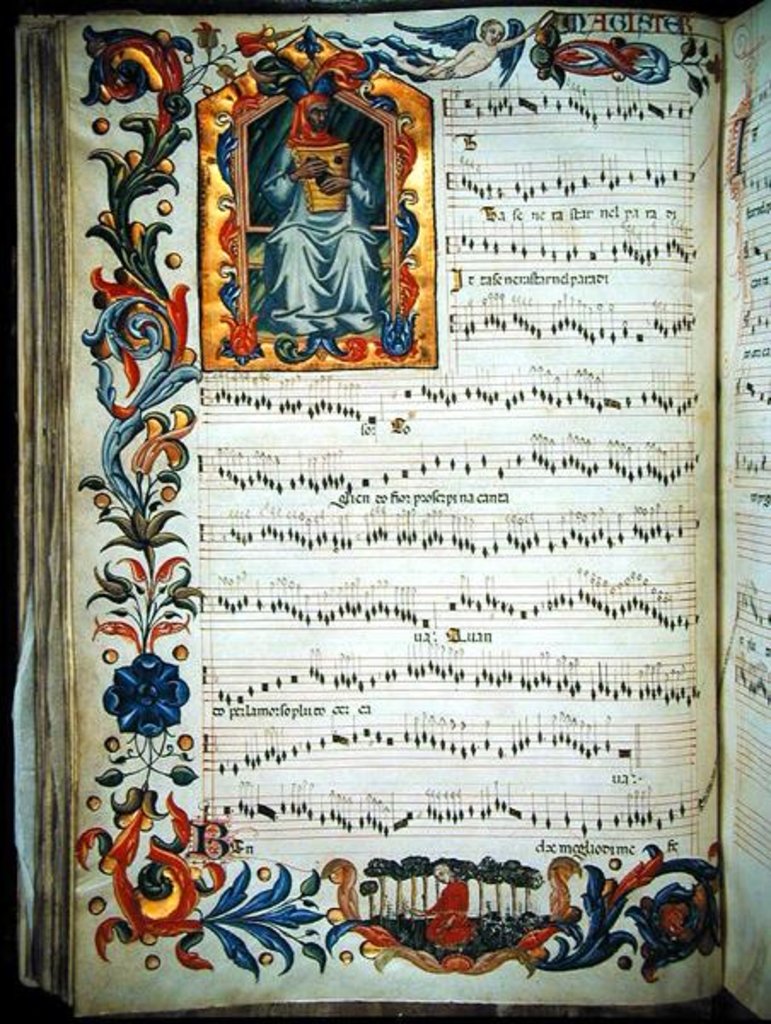 MAGISTER
Ba se ne ra star nel pa ra di
se nerastarnelparadi
so: Do
Quen do fior proserpina canta
ua: Quan
do perlamorsopluto cer ca
ua:
Ben
che megliodime